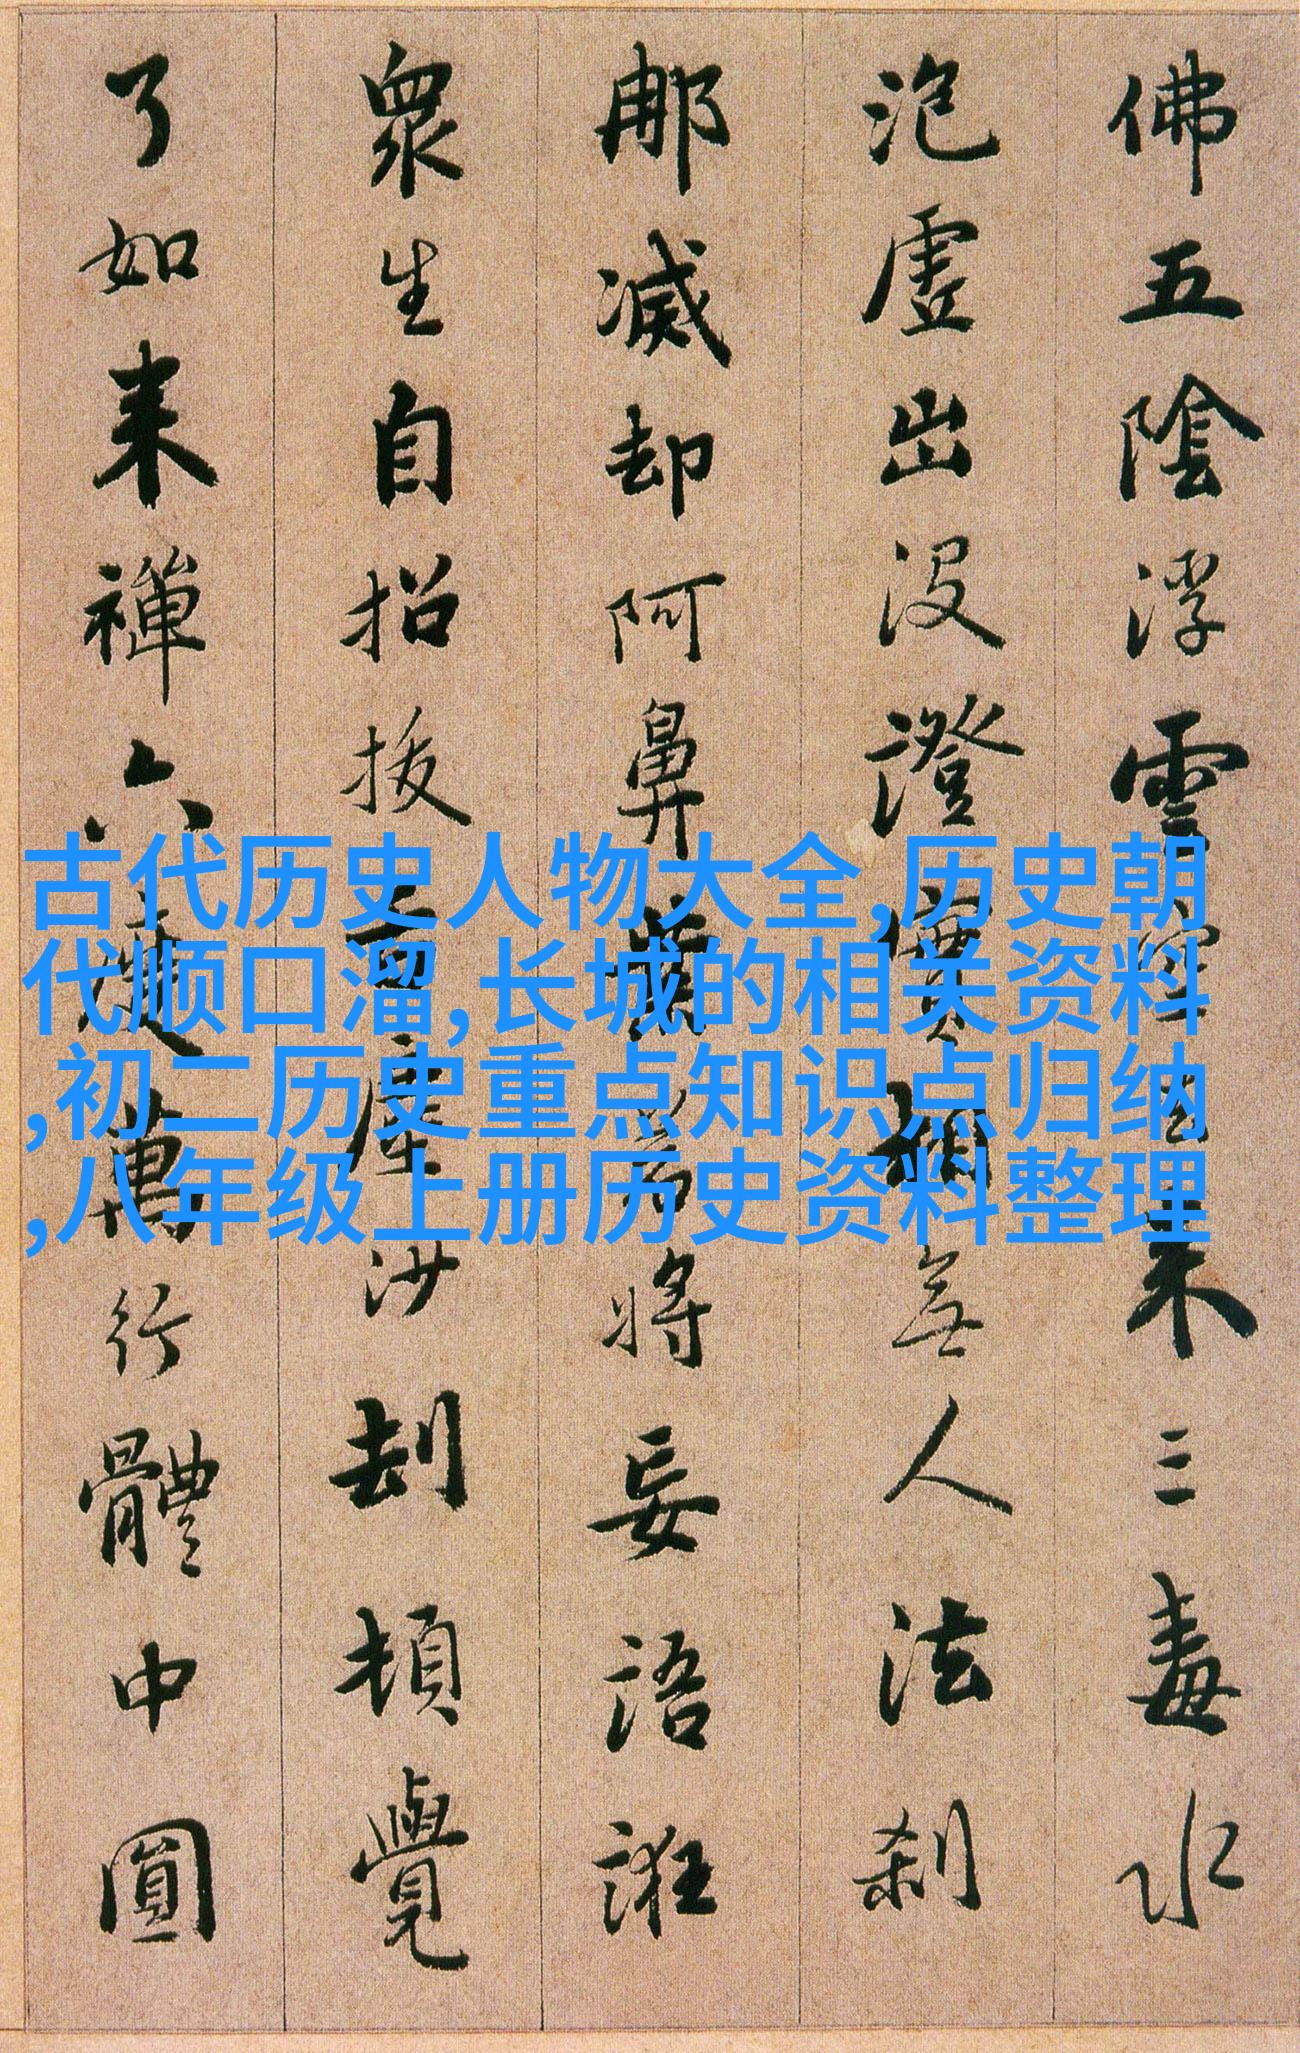 佛五陰浮雲空去来三毒水
泡虚出没證實相無人法刹
那滅却阿鼻業若將妄語誑
衆生自招拔舌塵沙劫頓覺
了如来禪六度萬行體中圓
古代历史人物大全,历史朝
代顺口溜,长城的相关资料
,初二历史重点知识点归纳
,八年级上册历史资料整理